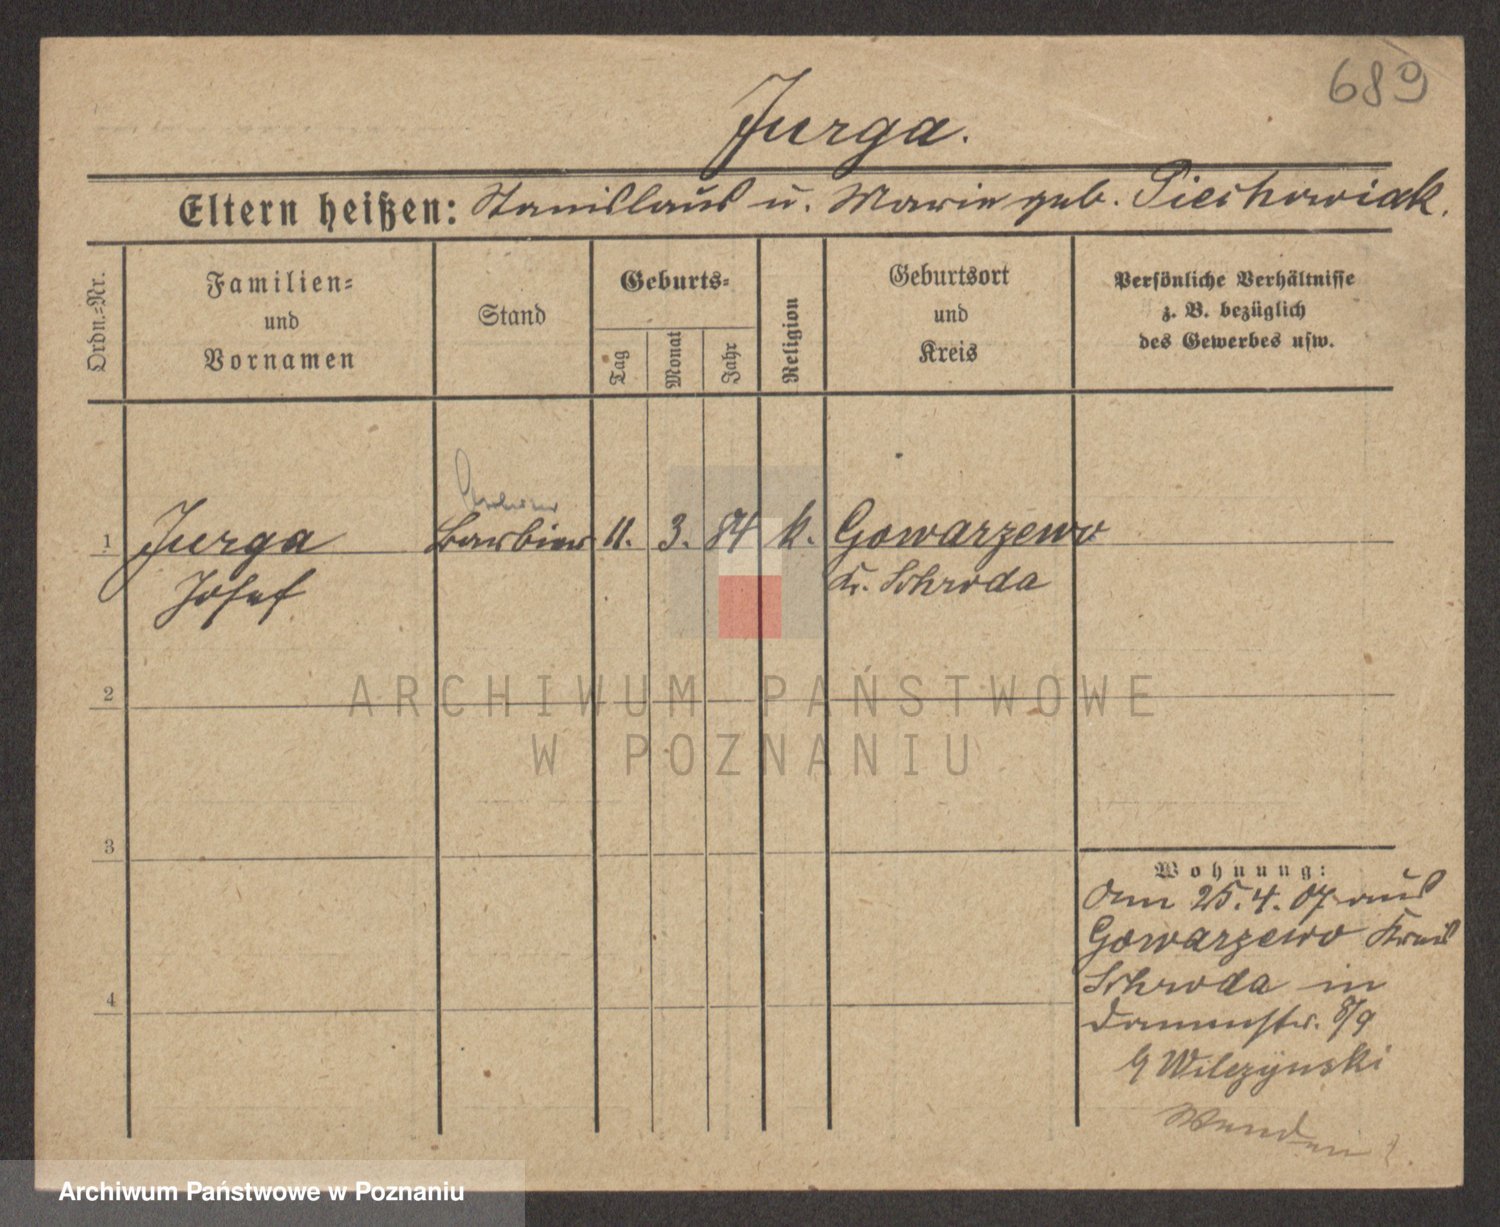 689
Jurga.
Eltern heißen: Stanislaus u. Marie geb. Piechowiak.
Ordn.=Nr.
Familien=
und
Vornamen
Stand
Geburts=
Tag
Monat
Jahr
Religion
Geburtsort
und
Kreis
Persönliche Verhältnisse
z. B. bezüglich
des Gewerbes usw.
1 Jurga Barbier 11. 3. 84 k. Gowarzewo
Josef Kr. Schroda
2
3
4
Wohnung:
Am 25.4.07 aus
Gowarzewo Kreis
Schroda in
Dammstr. 8/9
Wilczynski
Wenden!
ARCHIWUM PAŃSTWOWE
W POZNANIU
Archiwum Państwowe w Poznaniu